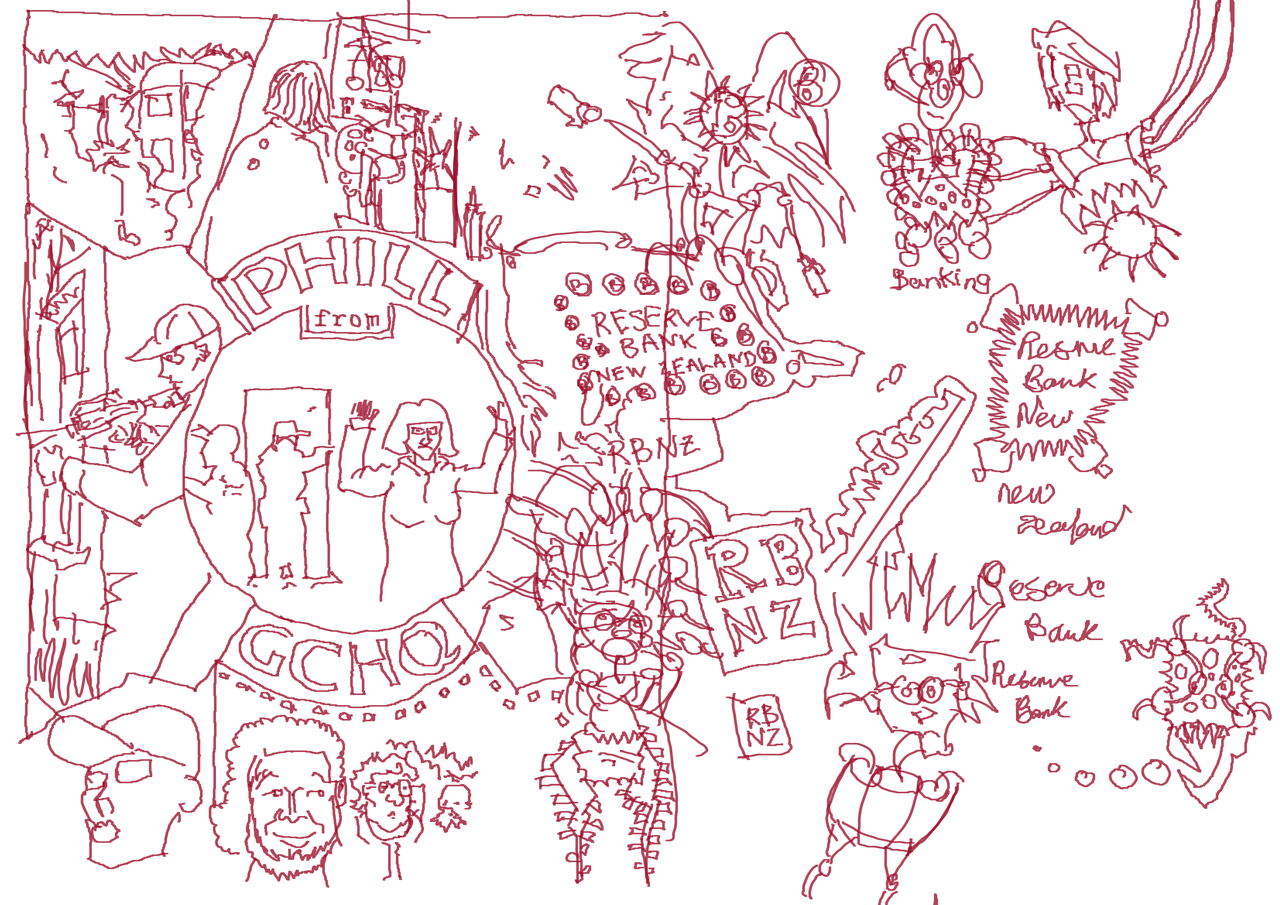 PHILL
from
GCHQ
RESERVE
BANK
NEW ZEALAND
RBNZ
RB
NZ
RB
NZ
Banking
Resrve
Bank
New
new
Zealand
Reserve
Bank
Reserve
Bank